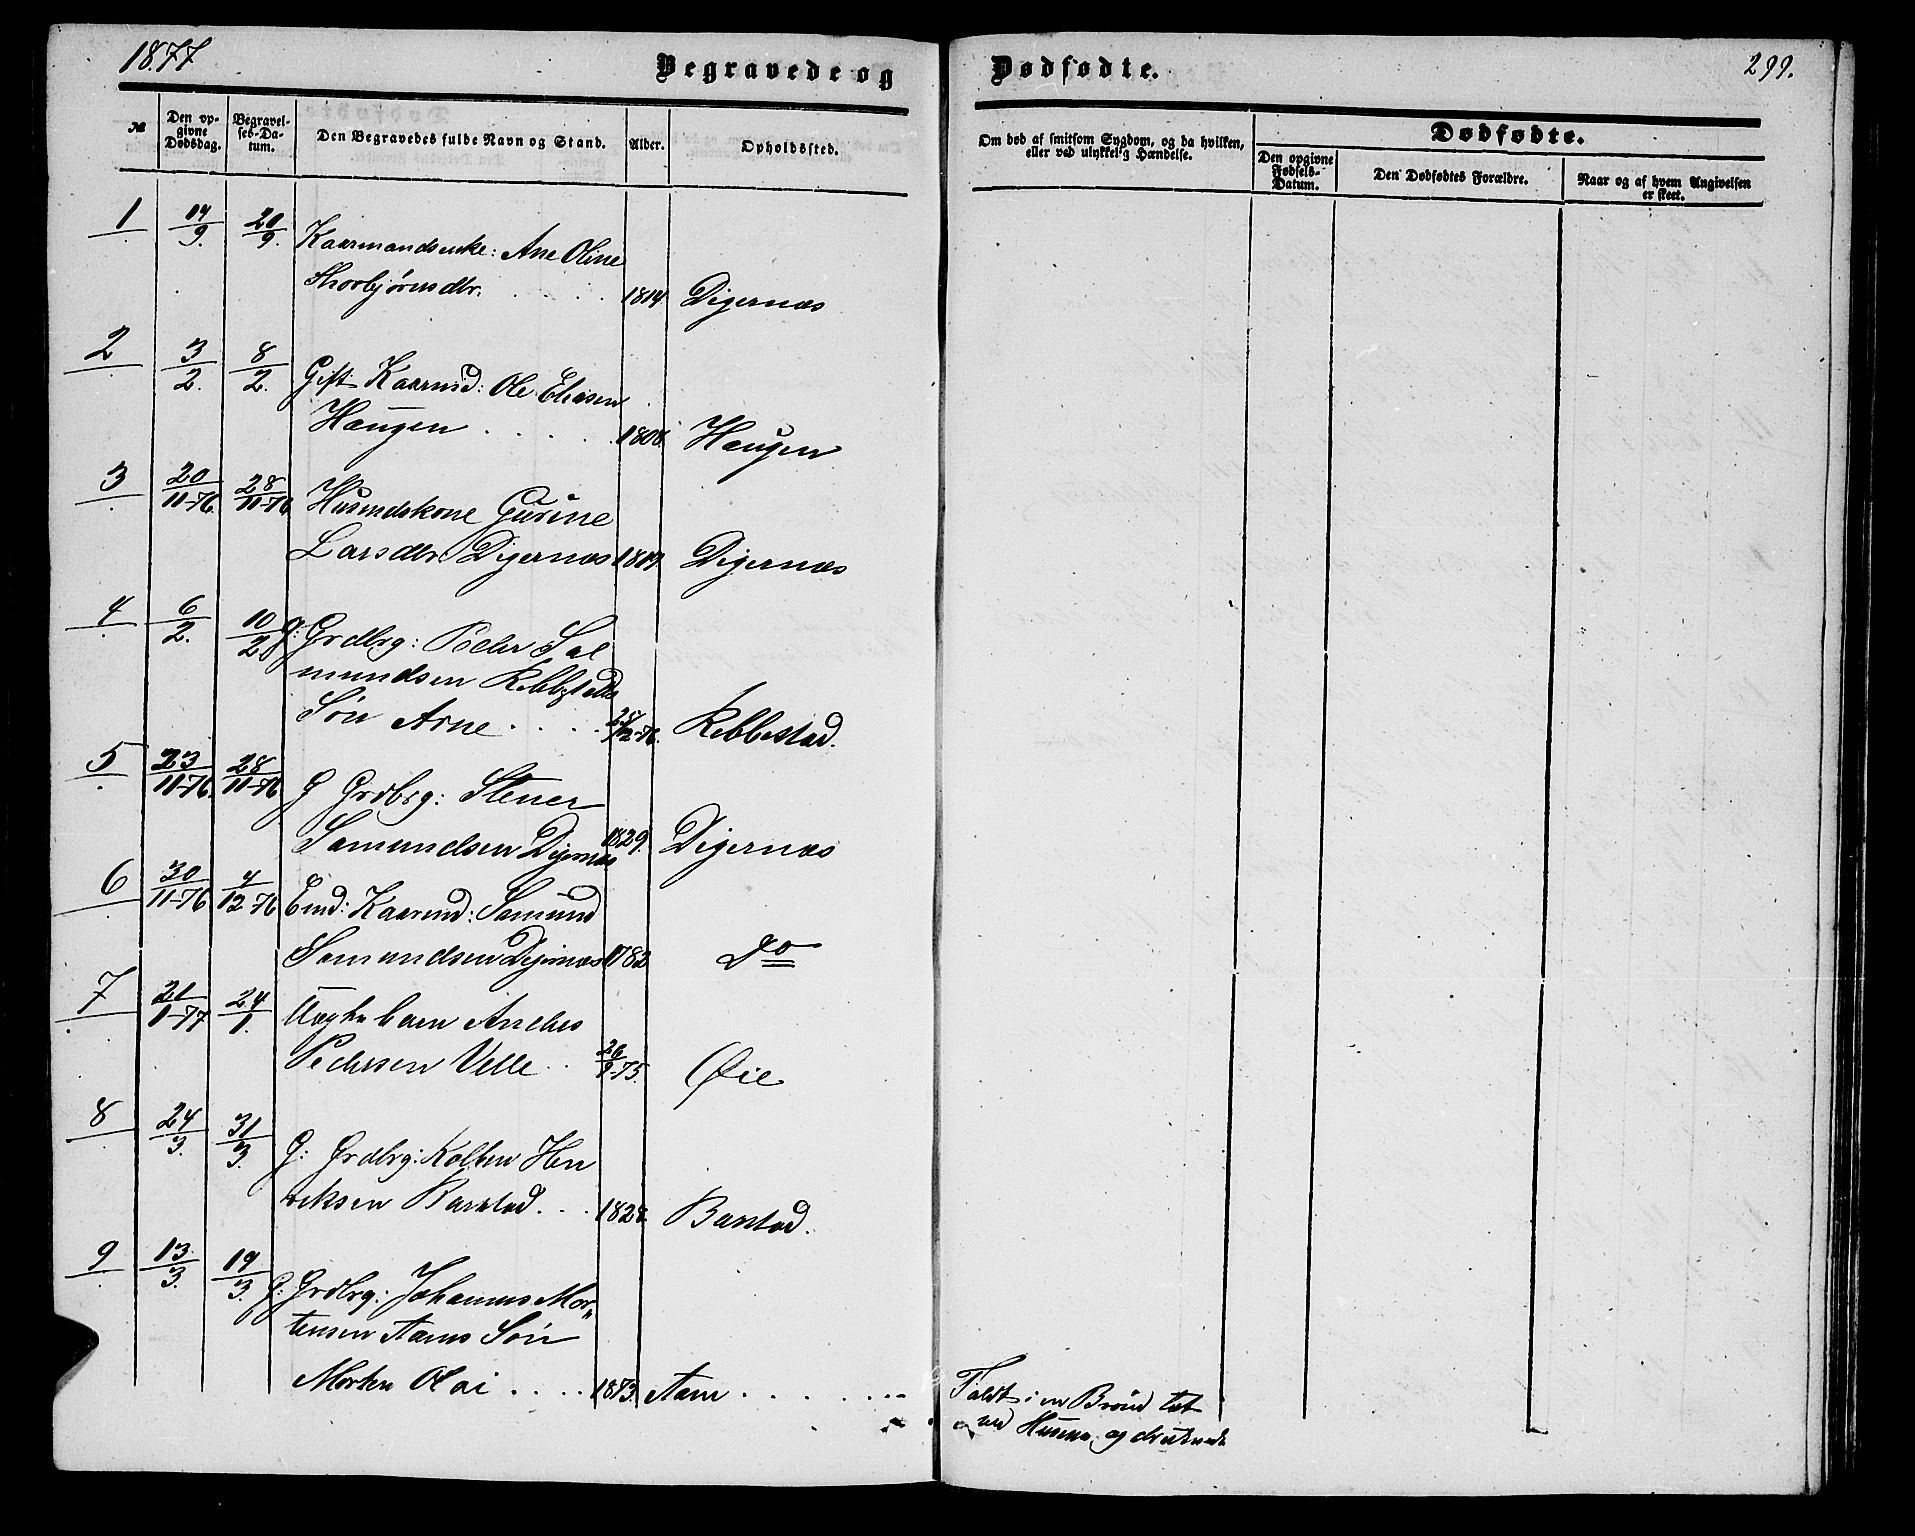 1877
Begravede og Dødfødte.
299.
№
Den opgivne Dødsdag.
Begravelses-Datum.
Den Begravedes fulde Navn og Stand.
Alder.
Opholdssted.
Om død af smitsom Sygdom, og da hvilken, eller ved ulykkelig Hændelse.
Dødfødte.
Den opgivne Fødsels-Datum.
Den Dødfødtes Forældre.
Naar og af hvem Angivelsen er skeet.
1 20/9. Kaarmandsenke: Ane Oline
Thorbjørnsdtr. . . . . 1814. Digernæs
2 3/2. 8/2. Gift Kaarmd: Ole Eliasen
Haugen . . . . . 1808. Haugen
3 20/11-76. 28/11-76. Husmdskone Gurine
Larsdtr. Digernæs Digernæs
4 6/2. 10/2 G: Grdbrg: Peder Sal
mundsen Rebbestads
Søn Arne . . . . 28/12-76. Rebbestad.
5 23/11-76. 28/11-76 G Grdbrg: Stener
Samundsen Digernæs 1829. Digernæs
6 30/11-76 4/12-76 Emd: Kaarmd: Samund
Samundsen Digernæs 1782 Do
7 21/1-77 24/1. Uægte barn Anders
Pedersen Velle . . 26/9-75. Øie
8 24/3. 31/3. G: Grdbrg: Kolben Hen
riksen Barstad. . . 1828. Barstad.
9 13/3. 19/3. G: Grdbrg: Johannes Mor„
tensen Aams Søn
Morten Olai . . . . 1873. Aam . . . . . . . Faldt i en Brønd tæt
ved Husene og druknede